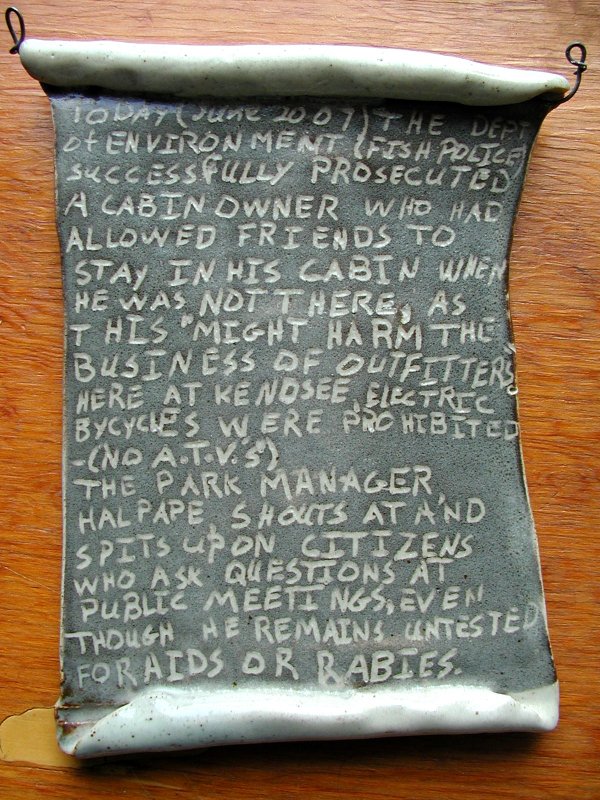 TODAY (June 2007) THE DEPT
of ENVIRONMENT (FISH POLICE)
SUCCESSFULLY PROSECUTED
A CABIN OWNER WHO HAD
ALLOWED FRIENDS TO
STAY IN HIS CABIN WHEN
HE WAS NOT THERE, AS
THIS "MIGHT HARM THE
BUSINESS OF OUTFITTERS"
HERE AT KENOSEE, ELECTRIC
BYCYCLES WERE PROHIBITED
-(NO A.T.V.'S")
THE PARK MANAGER,
HAL PAPE, SHOUTS AT AND
SPITS UPON CITIZENS
WHO ASK QUESTIONS AT
PUBLIC MEETINGS, EVEN
THOUGH HE REMAINS UNTESTED
FOR AIDS OR RABIES.